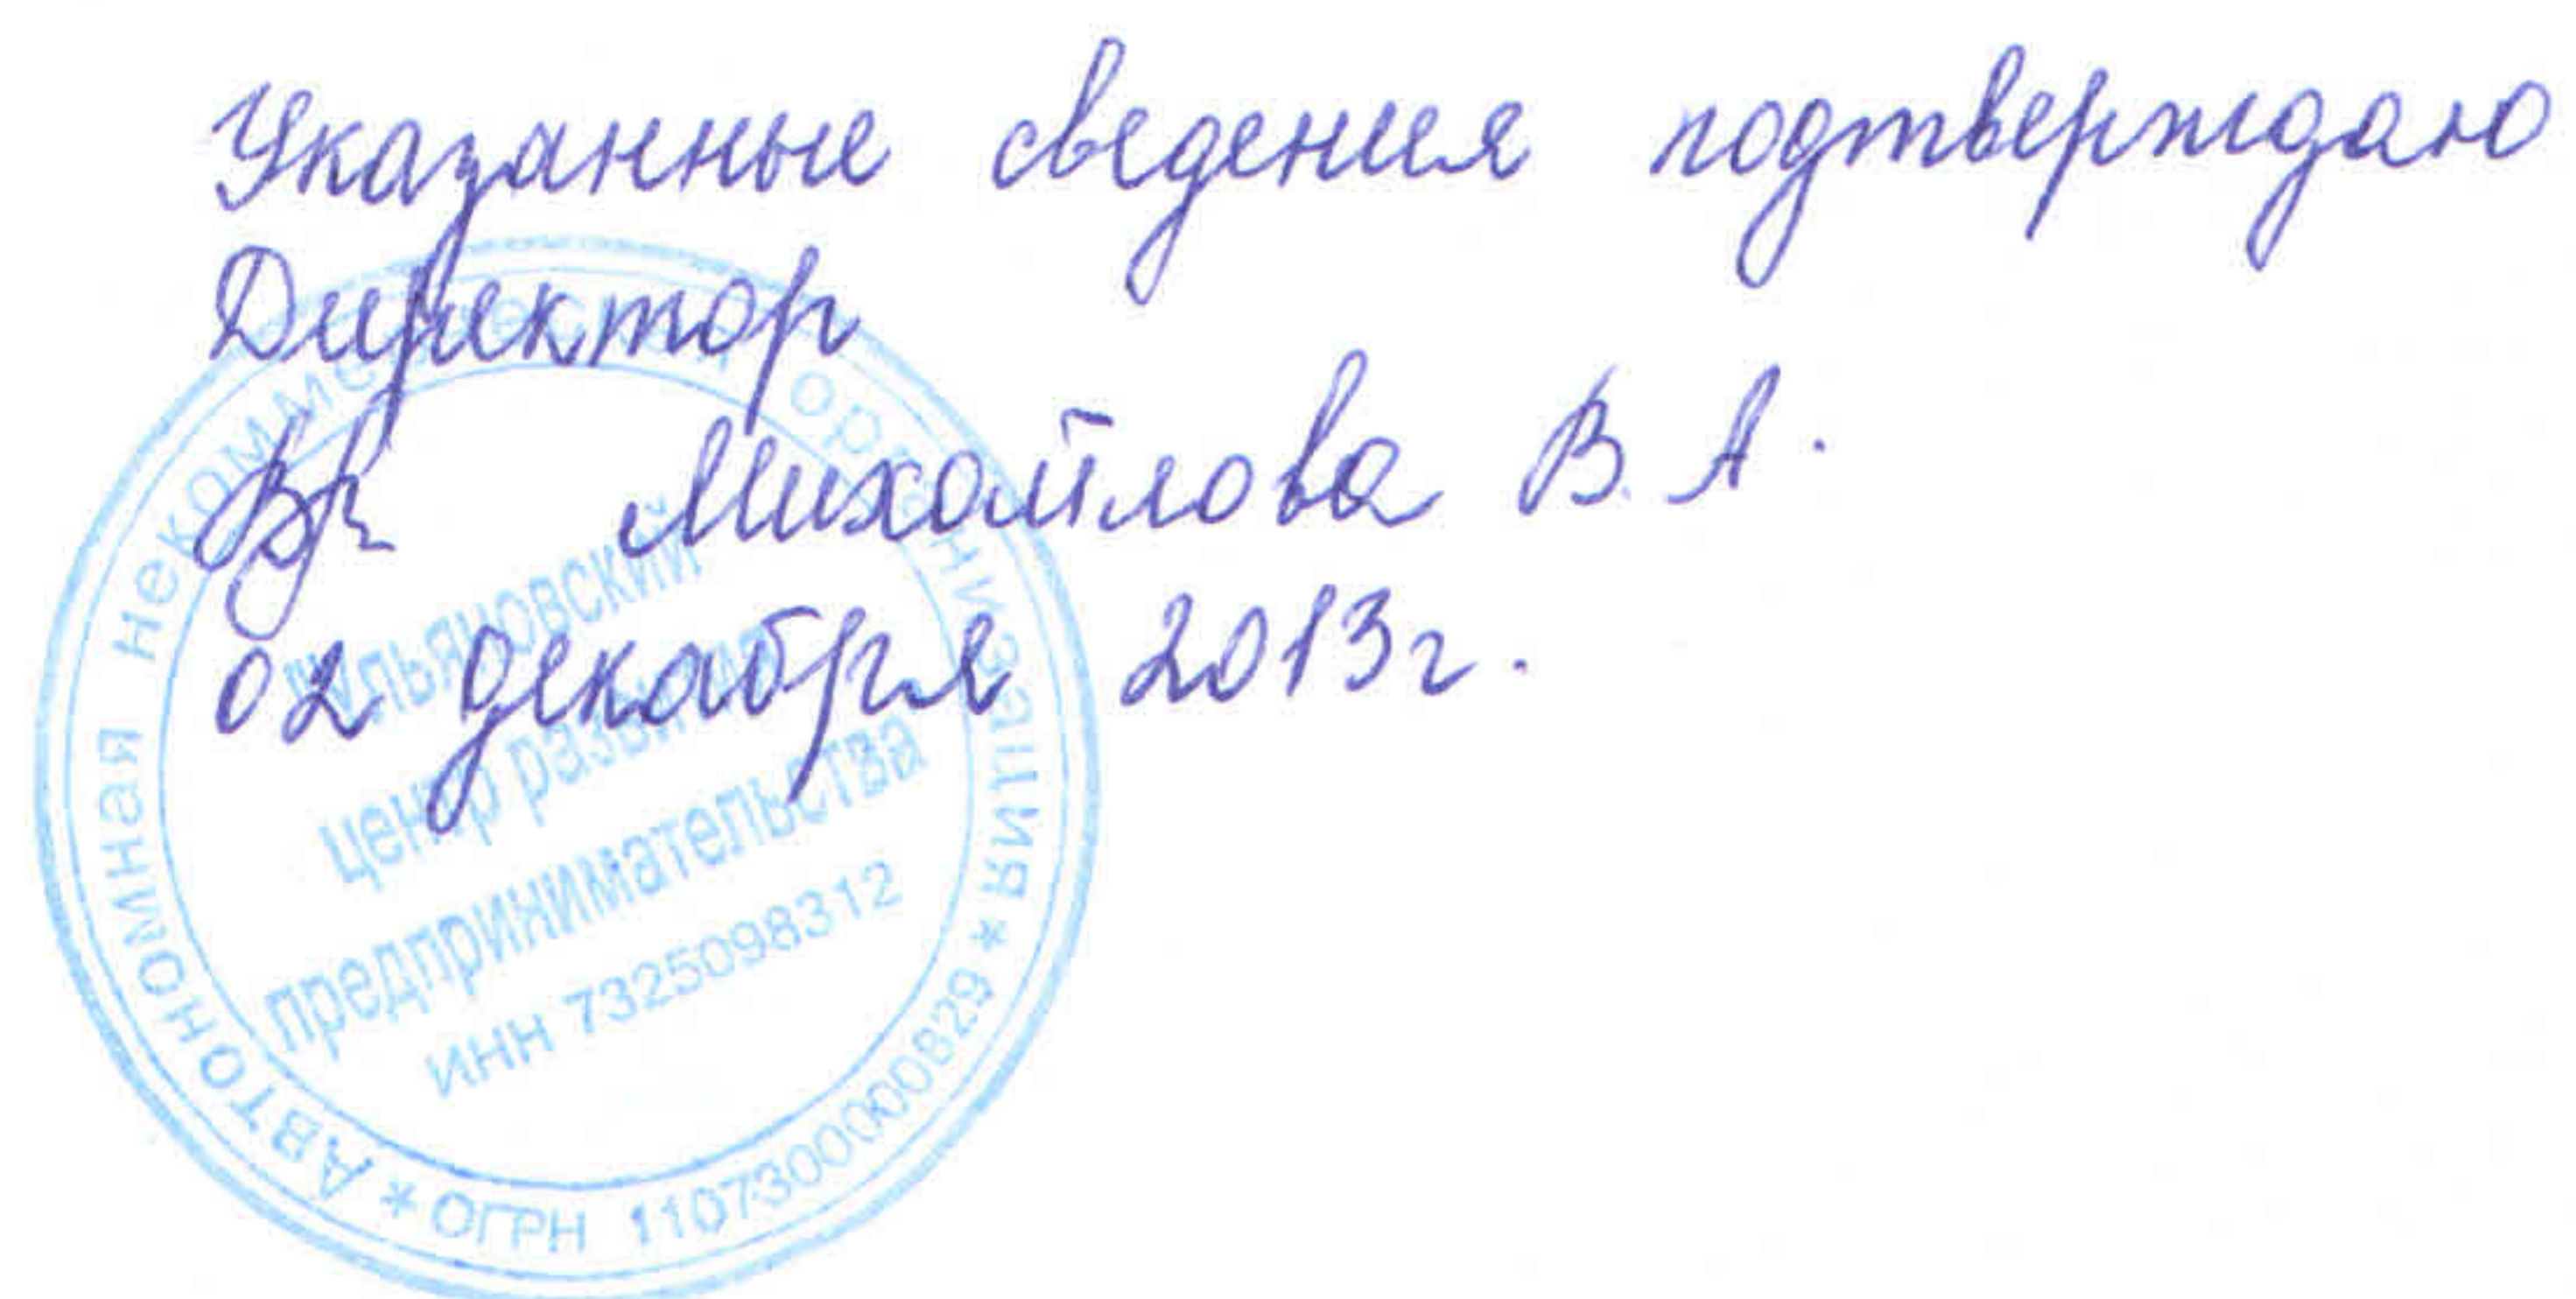 Указанные сведения подтверждаю
Директор
Михайлова В. А.
02 декабря 2013г.
Автономная некоммерческая организация *
* ОГРН 1107300000829
Ульяновский
центр развития
предпринимательства
ИНН 7325098312